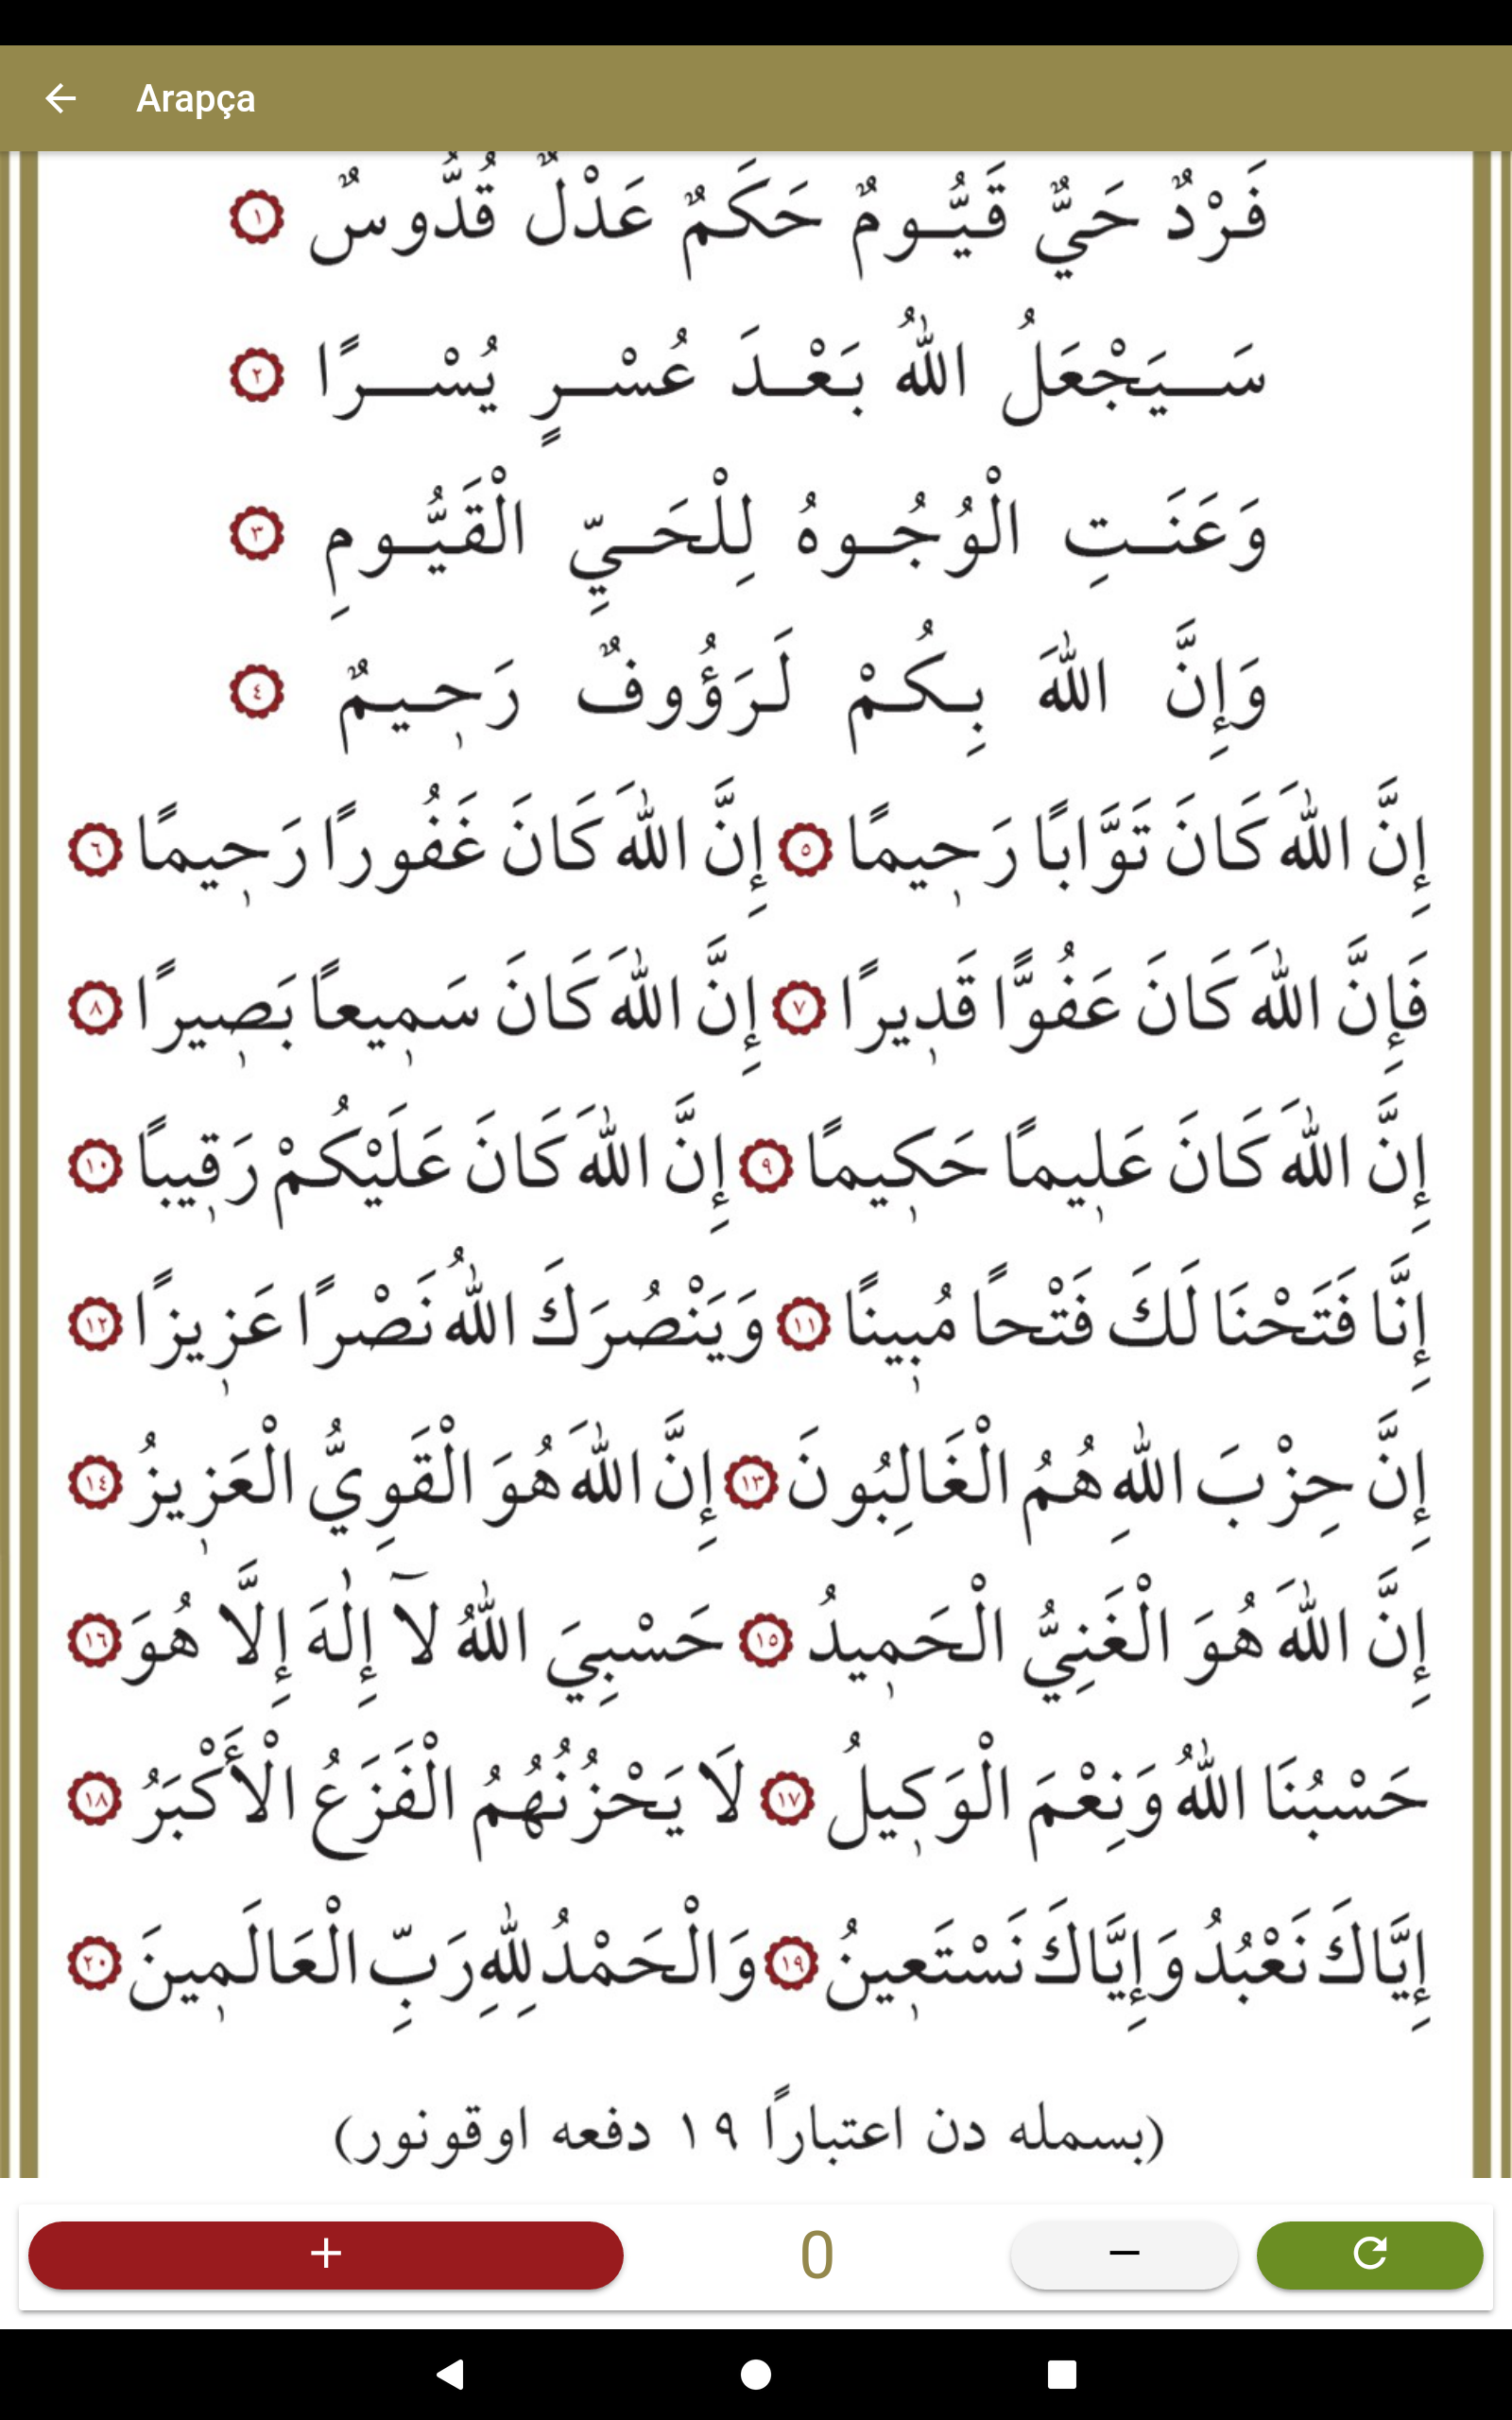 Arapça
فَرْدٌ حَيٌّ قَيُّـومٌ حَكَمٌ عَدْلٌ قُدُّوسٌ ١
سَـيَجْعَلُ اللّٰهُ بَعْـدَ عُسْـرٍ يُسْـرًا ٢
وَعَنَـتِ الْوُجُـوهُ لِلْحَـيِّ الْقَيُّـومِ ٣
وَإِنَّ اللّٰهَ بِكُمْ لَرَؤُوفٌ رَحٖيمٌ ٤
إِنَّ اللّٰهَ كَانَ تَوَّابًا رَحٖيمًا ٥ إِنَّ اللّٰهَ كَانَ غَفُورًا رَحٖيمًا ٦
فَإِنَّ اللّٰهَ كَانَ عَفُوًّا قَدٖيرًا ٧ إِنَّ اللّٰهَ كَانَ سَمٖيعًا بَصٖيرًا ٨
إِنَّ اللّٰهَ كَانَ عَلٖيمًا حَكٖيمًا ٩ إِنَّ اللّٰهَ كَانَ عَلَيْكُمْ رَقٖيبًا ١٠
إِنَّا فَتَحْنَا لَكَ فَتْحًا مُبٖينًا ١١ وَيَنْصُرَكَ اللّٰهُ نَصْرًا عَزٖيزًا ١٢
إِنَّ حِزْبَ اللّٰهِ هُمُ الْغَالِبُونَ ١٣ إِنَّ اللّٰهَ هُوَ الْقَوِيُّ الْعَزٖيزُ ١٤
إِنَّ اللّٰهَ هُوَ الْغَنِيُّ الْحَمٖيدُ ١٥ حَسْبِيَ اللّٰهُ لَآ إِلٰهَ إِلَّا هُوَ ١٦
حَسْبُنَا اللّٰهُ وَنِعْمَ الْوَكٖيلُ ١٧ لَا يَحْزُنُهُمُ الْفَزَعُ الْأَكْبَرُ ١٨
إِيَّاكَ نَعْبُدُ وَإِيَّاكَ نَسْتَعٖينُ ١٩ وَالْحَمْدُ لِلّٰهِ رَبِّ الْعَالَمٖينَ ٢٠
(بسمله دن اعتبارًا ١٩ دفعه اوقونور)
+ 0 −